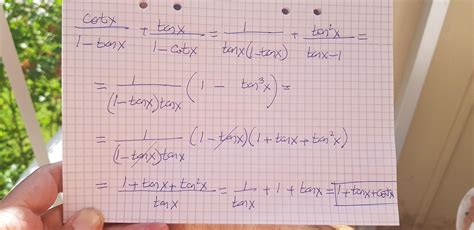 cotx/(1-tanx) + tanx/(1-cotx) = 1/(tanx(1-tanx)) + tan²x/(tanx-1) =
= 1/((1-tanx)tanx) (1 - tan³x) =
= 1/((1-tanx)tanx) (1-tanx)(1+tanx+tan²x)
= (1+tanx+tan²x)/tanx = 1/tanx + 1 + tanx = 1+tanx+cotx